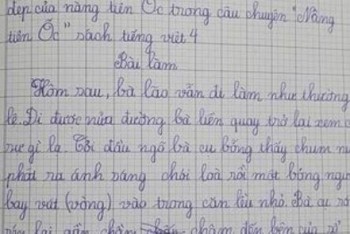 đẹp của nàng tiên Ốc trong câu chuyện "Nàng
tiên Ốc" sách tiếng việt 4
Bài làm
Hôm sau, bà lão vẫn đi làm như thường
lệ. Đi được nửa đường bà liền quay trở lại xem c
sự gì lạ. Tới đầu ngõ bà cụ bỗng thấy chum nư
phát ra ánh sáng chói loà rồi một bóng ngư
bay vút (vòng) vào trong căn lều nhỏ. Bà cụ
lại gần chầm chậm đến bên cửa